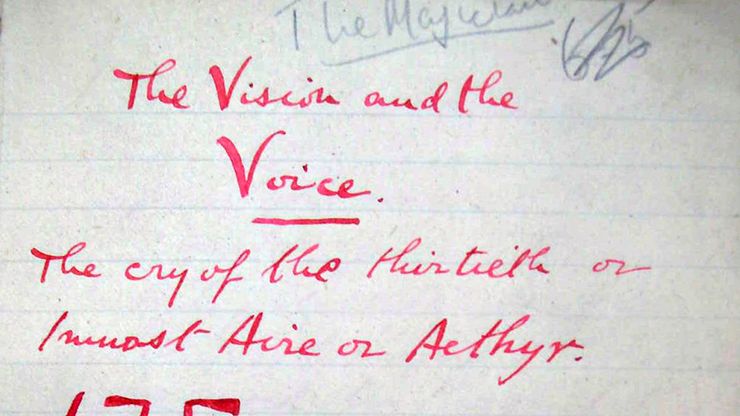 The Magician
The Vision and the
Voice.
The cry of the thirtieth or
Inmost Aire or Aethyr.